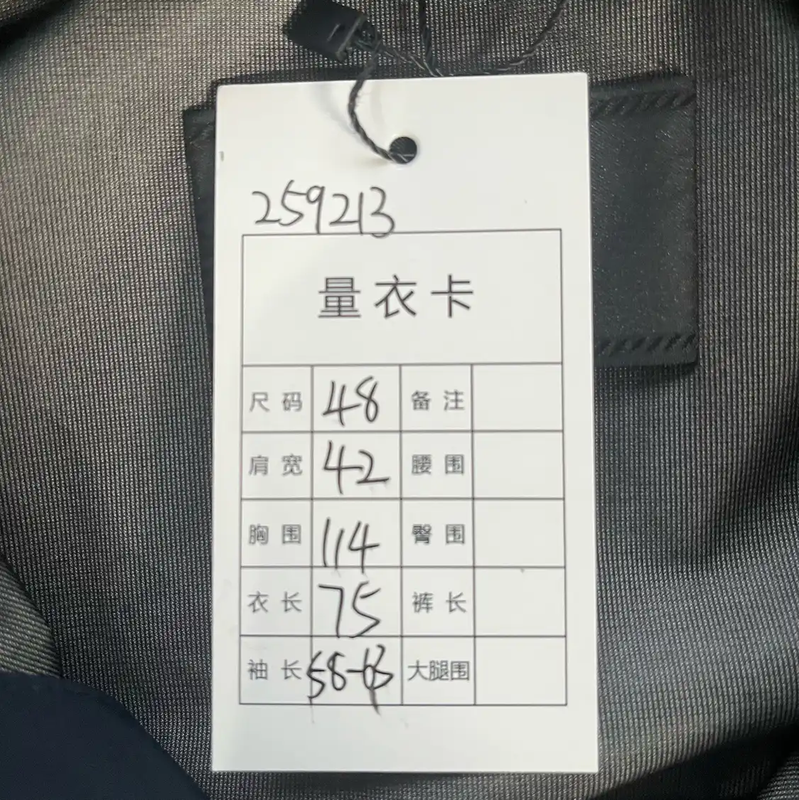 259213
量衣卡
尺码 48 备注
肩宽 42 腰围
胸围 114 臀围
衣长 75 裤长
袖长 58-63 大腿围